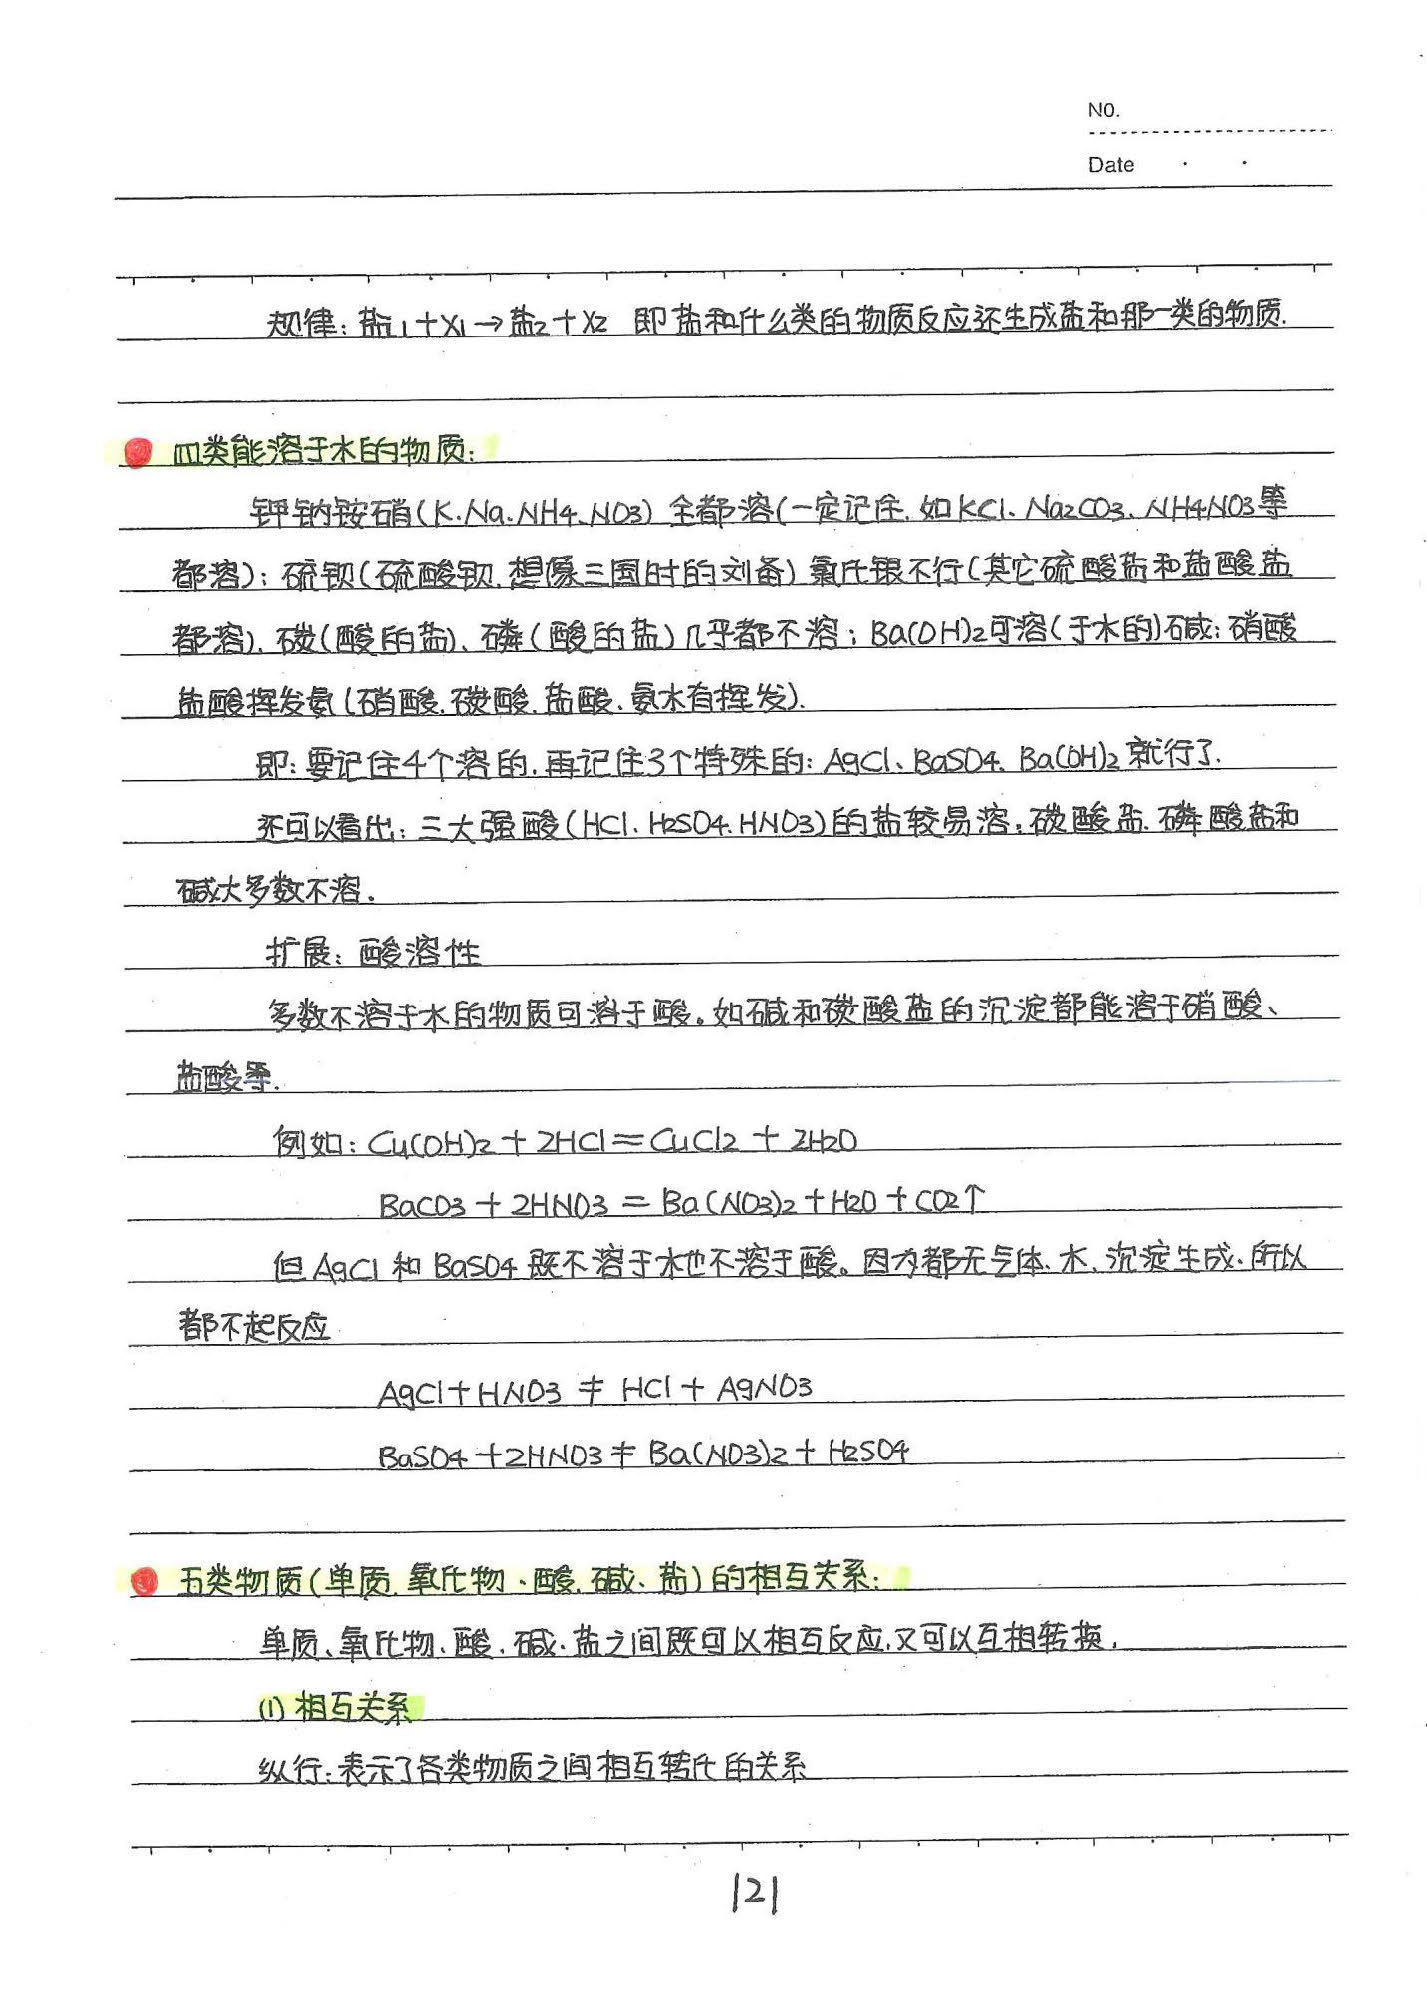 NO.
Date
规律: 盐1+X1→盐2+X2 即盐和什么类的物质反应还生成盐和那一类的物质.
四类能溶于水的物质:
钾钠铵硝(K.Na.NH4.NO3) 全都溶(一定记住.如KCl、Na2CO3、NH4NO3等
都溶); 硫钡(硫酸钡.想像三国时的刘备)氯化银不行(其它硫酸盐和盐酸盐
都溶).碳(酸的盐)、磷(酸的盐)几乎都不溶; Ba(OH)2可溶(于水的)碱; 硝酸
盐酸挥发氨(硝酸.碳酸.盐酸、氨水有挥发).
即: 要记住4个溶的.再记住3个特殊的: AgCl、BaSO4、Ba(OH)2就行了.
还可以看出: 三大强酸(HCl.H2SO4.HNO3)的盐较易溶; 碳酸盐.磷酸盐和
碱大多数不溶.
扩展: 酸溶性
多数不溶于水的物质可溶于酸。如碱和碳酸盐的沉淀都能溶于硝酸、
盐酸等.
例如: Cu(OH)2+2HCl=CuCl2+2H2O
BaCO3+2HNO3=Ba(NO3)2+H2O+CO2↑
但AgCl和BaSO4既不溶于水也不溶于酸。因为都无气体、水、沉淀生成.所以
都不起反应
AgCl+HNO3≠HCl+AgNO3
BaSO4+2HNO3≠Ba(NO3)2+H2SO4
五类物质(单质.氧化物、酸.碱、盐)的相互关系:
单质、氧化物、酸、碱、盐之间既可以相互反应.又可以互相转换.
(1)相互关系
纵行: 表示了各类物质之间相互转化的关系
121